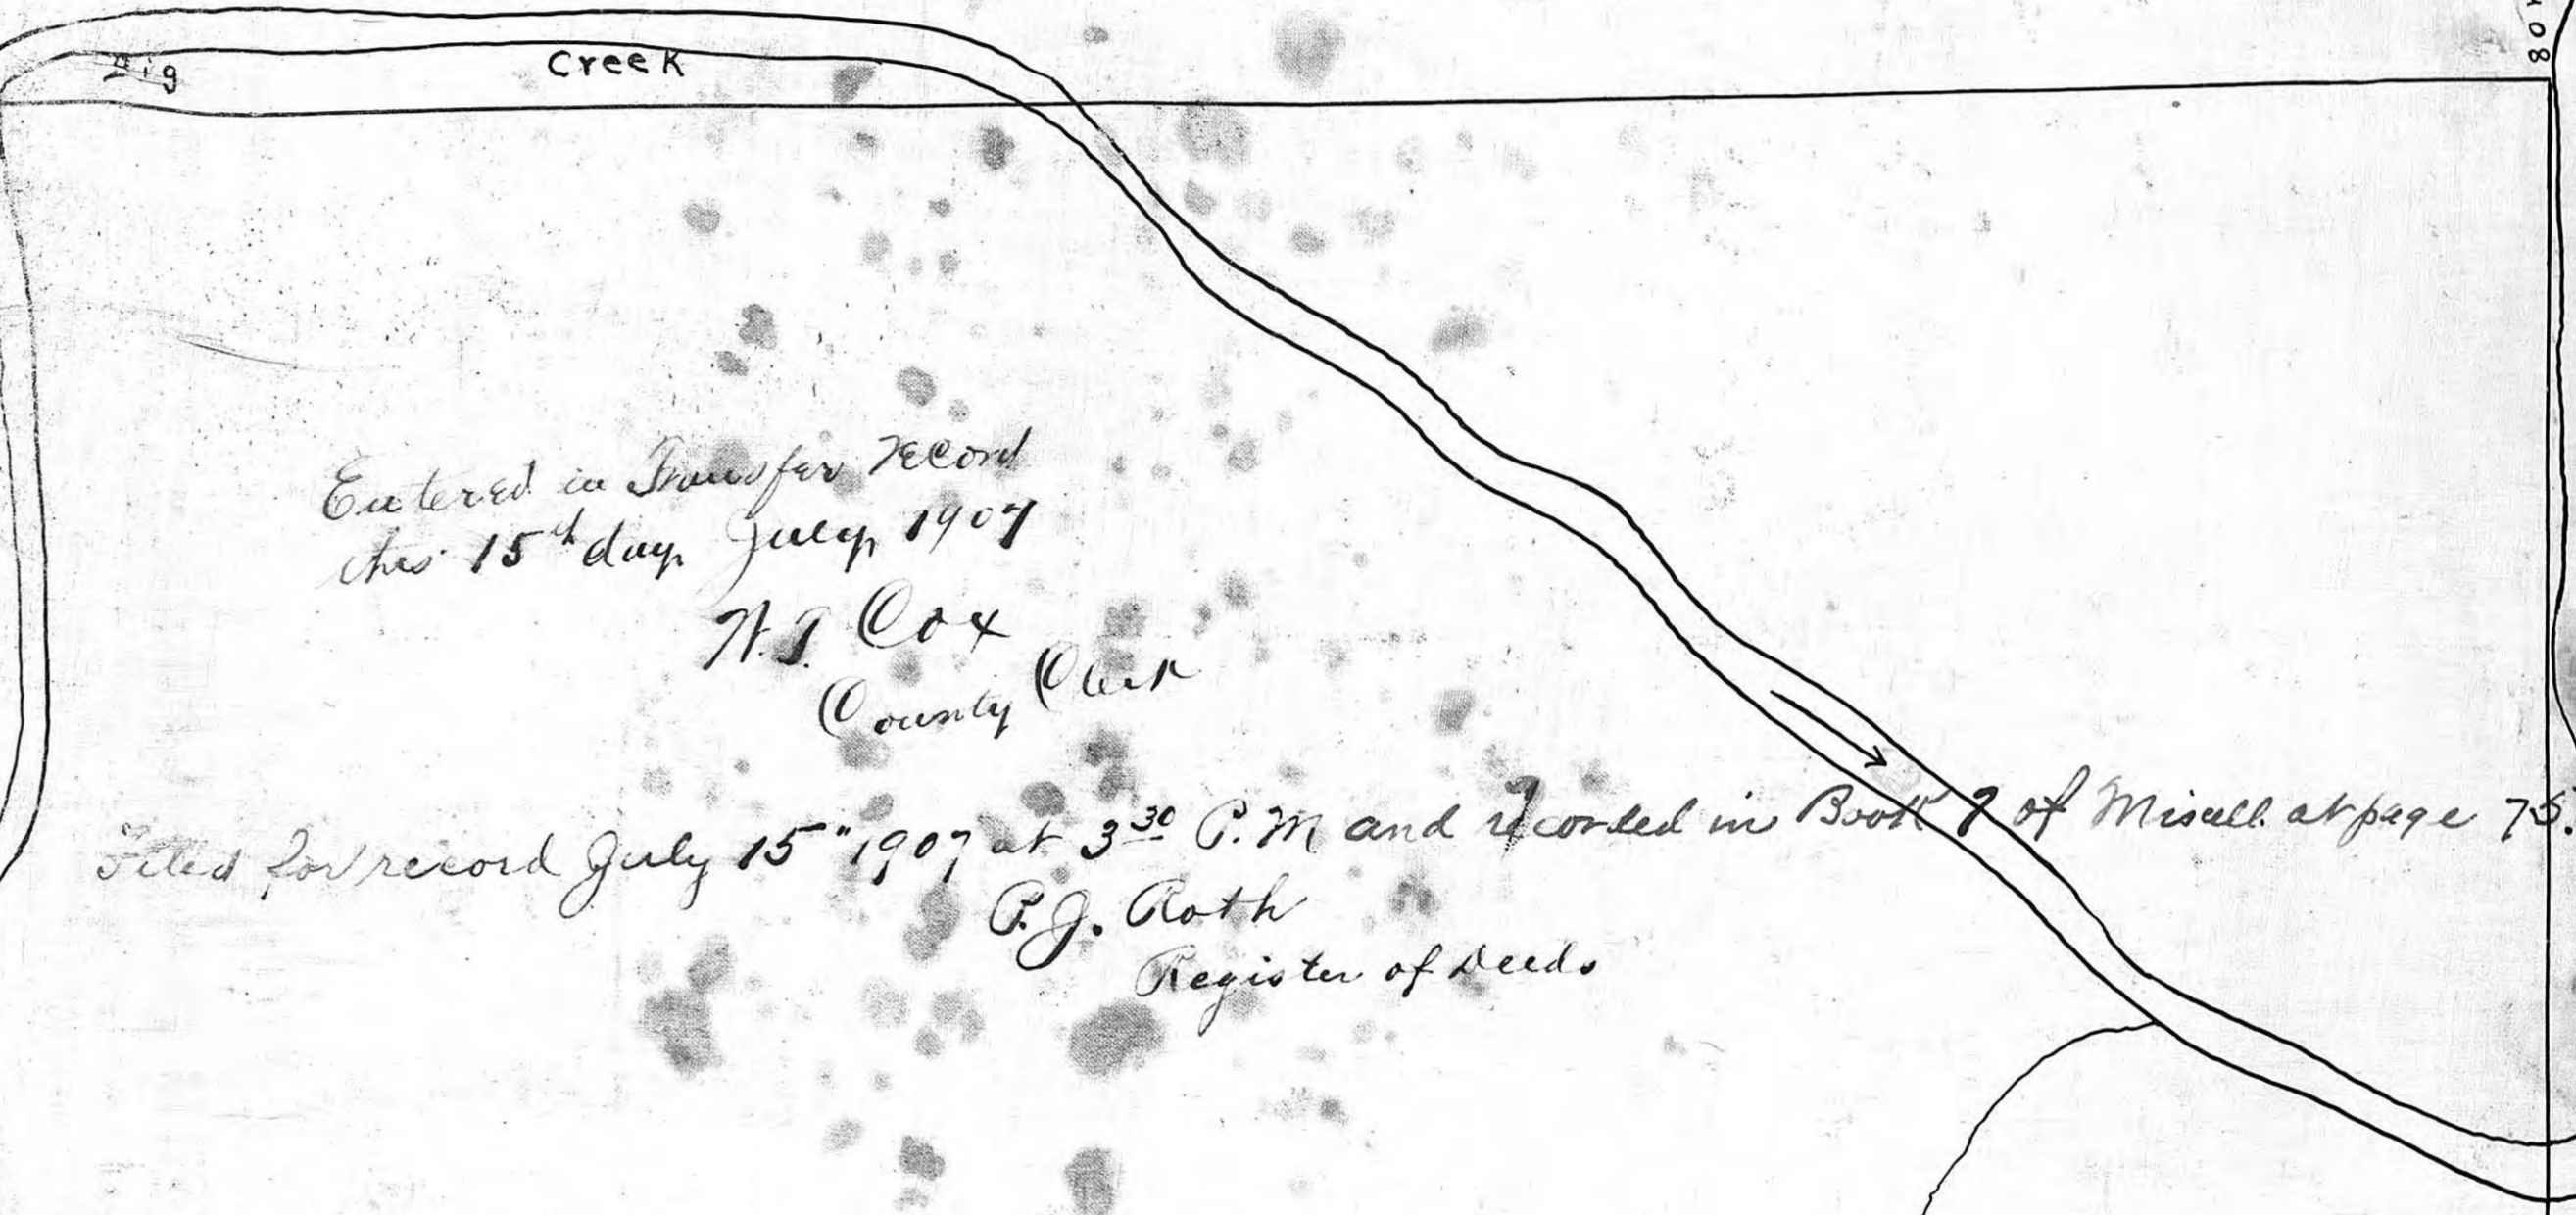 Big Creek
80
Entered in Transfer record
this 15th day July 1907
Cox
County Clerk
Filed for record July 15" 1907 at 3 30 P.M and recorded in Book 7 of Miscell. at page 75.
P. J. Roth
Register of Deeds